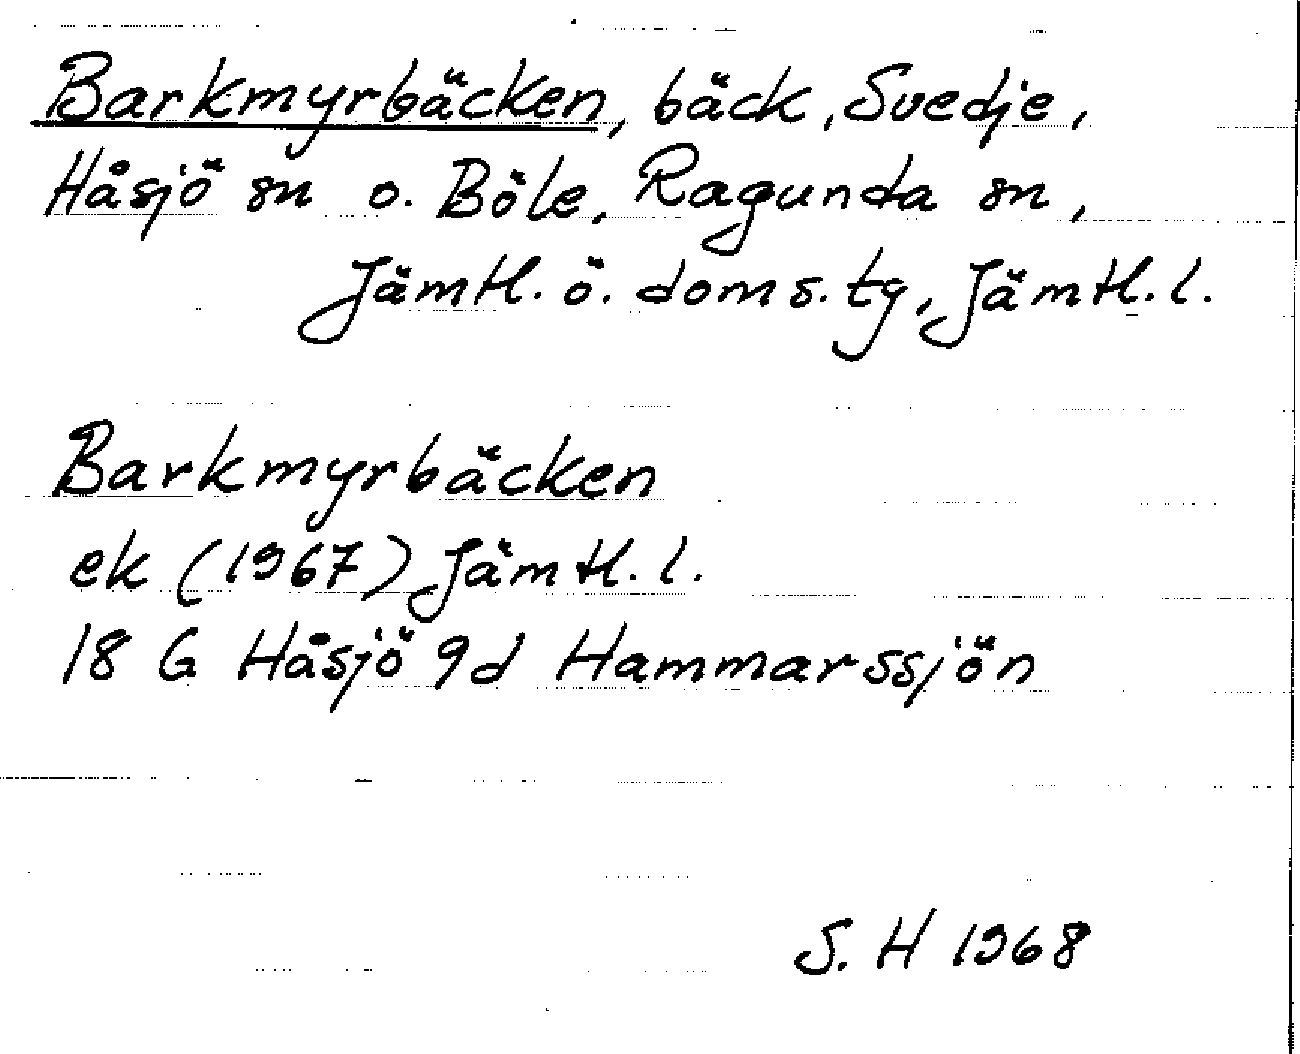 Barkmyrbäcken, bäck, Svedje,
Håsjö sn o. Böle, Ragunda sn,
Jämtl. ö. doms. tg, Jämtl. l.
Barkmyrbäcken
ek (1967) Jämtl. l.
18 G Håsjö 9d Hammarssjön
S. H 1968